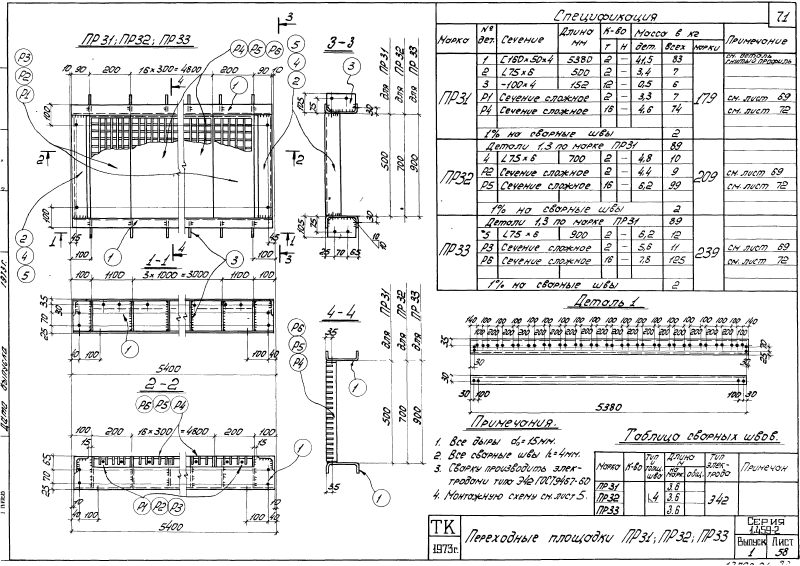 71
Спецификация
Марка № дет. Сечение Длина мм К-во Масса в кг Примечание
т н дет. всех марки
ПР31
1 С160×50×4 5380 2 – 41,5 83 см. деталь гнутый профиль
2 L75×6 500 2 – 3,4 7
3 –100×4 152 12 – 0,5 6 179
Р1 Сечение сложное 2 – 3,3 7 см. лист 69
Р4 Сечение сложное 16 – 4,6 74 см. лист 72
1% на сварные швы 2
ПР32
Детали 1,3 по марке ПР31 89
4 L75×6 700 2 – 4,8 10 209
Р2 Сечение сложное 2 – 4,4 9 см. лист 69
Р5 Сечение сложное 16 – 6,2 99 см. лист 72
1% на сварные швы 2
ПР33
Детали 1,3 по марке ПР31 89
5 L75×6 900 2 – 6,2 12 239
Р3 Сечение сложное 2 – 5,6 11 см. лист 69
Р6 Сечение сложное 16 – 7,8 125 см. лист 72
1% на сварные швы 2
ПР31; ПР32; ПР33
3
10 90 200 16×300=4800 200 90 10
Р3 Р2 Р1
Р4 Р5 Р6
5 4 2
1
100
2 2
2 4 5
1 3
45 45
100 100
1 1
4 4
3
1-1
100 1100 3×1000=3000 1100 100
35 30
25 70
40 100 100 40
1
5400
2-2
Р6 Р5 Р4
100 200 16×300=4800 200 100
15 15
65 70 25
Р1 Р2 Р3
1
10 10
40 100 100 40
5400
3-3
для ПР31
для ПР32
для ПР33
3
105 75 30
500 700 900
105 75 30
10
25 70 65
4-4
для ПР31
для ПР32
для ПР33
35
Р6 Р5 Р4
1
500 700 900
35
1
Деталь 1
140 100 100 100 100 100 100 100 100 140
100 200 200 200 200 200 200 200 200 100
35
30 30
25 70
100 100
30
30 30
5380
Примечания.
1. Все дыры d₀=15мм.
2. Все сварные швы h=4мм.
3. Сварку производить элек-
тродами типа Э42 ГОСТ9467-60
4. Монтажную схему см. лист 5.
Таблица сварных швов.
Марка К-во Тип толщ. шва Длина м на марк. общ. Тип элек-трода Примечан
ПР31 3.6
ПР32 4 3.6 Э42
ПР33 3.6
ТК
1973г.
Переходные площадки ПР31; ПР32; ПР33
Серия
1.459-2
Выпуск Лист
1 58
Дата выпуска 1973г.